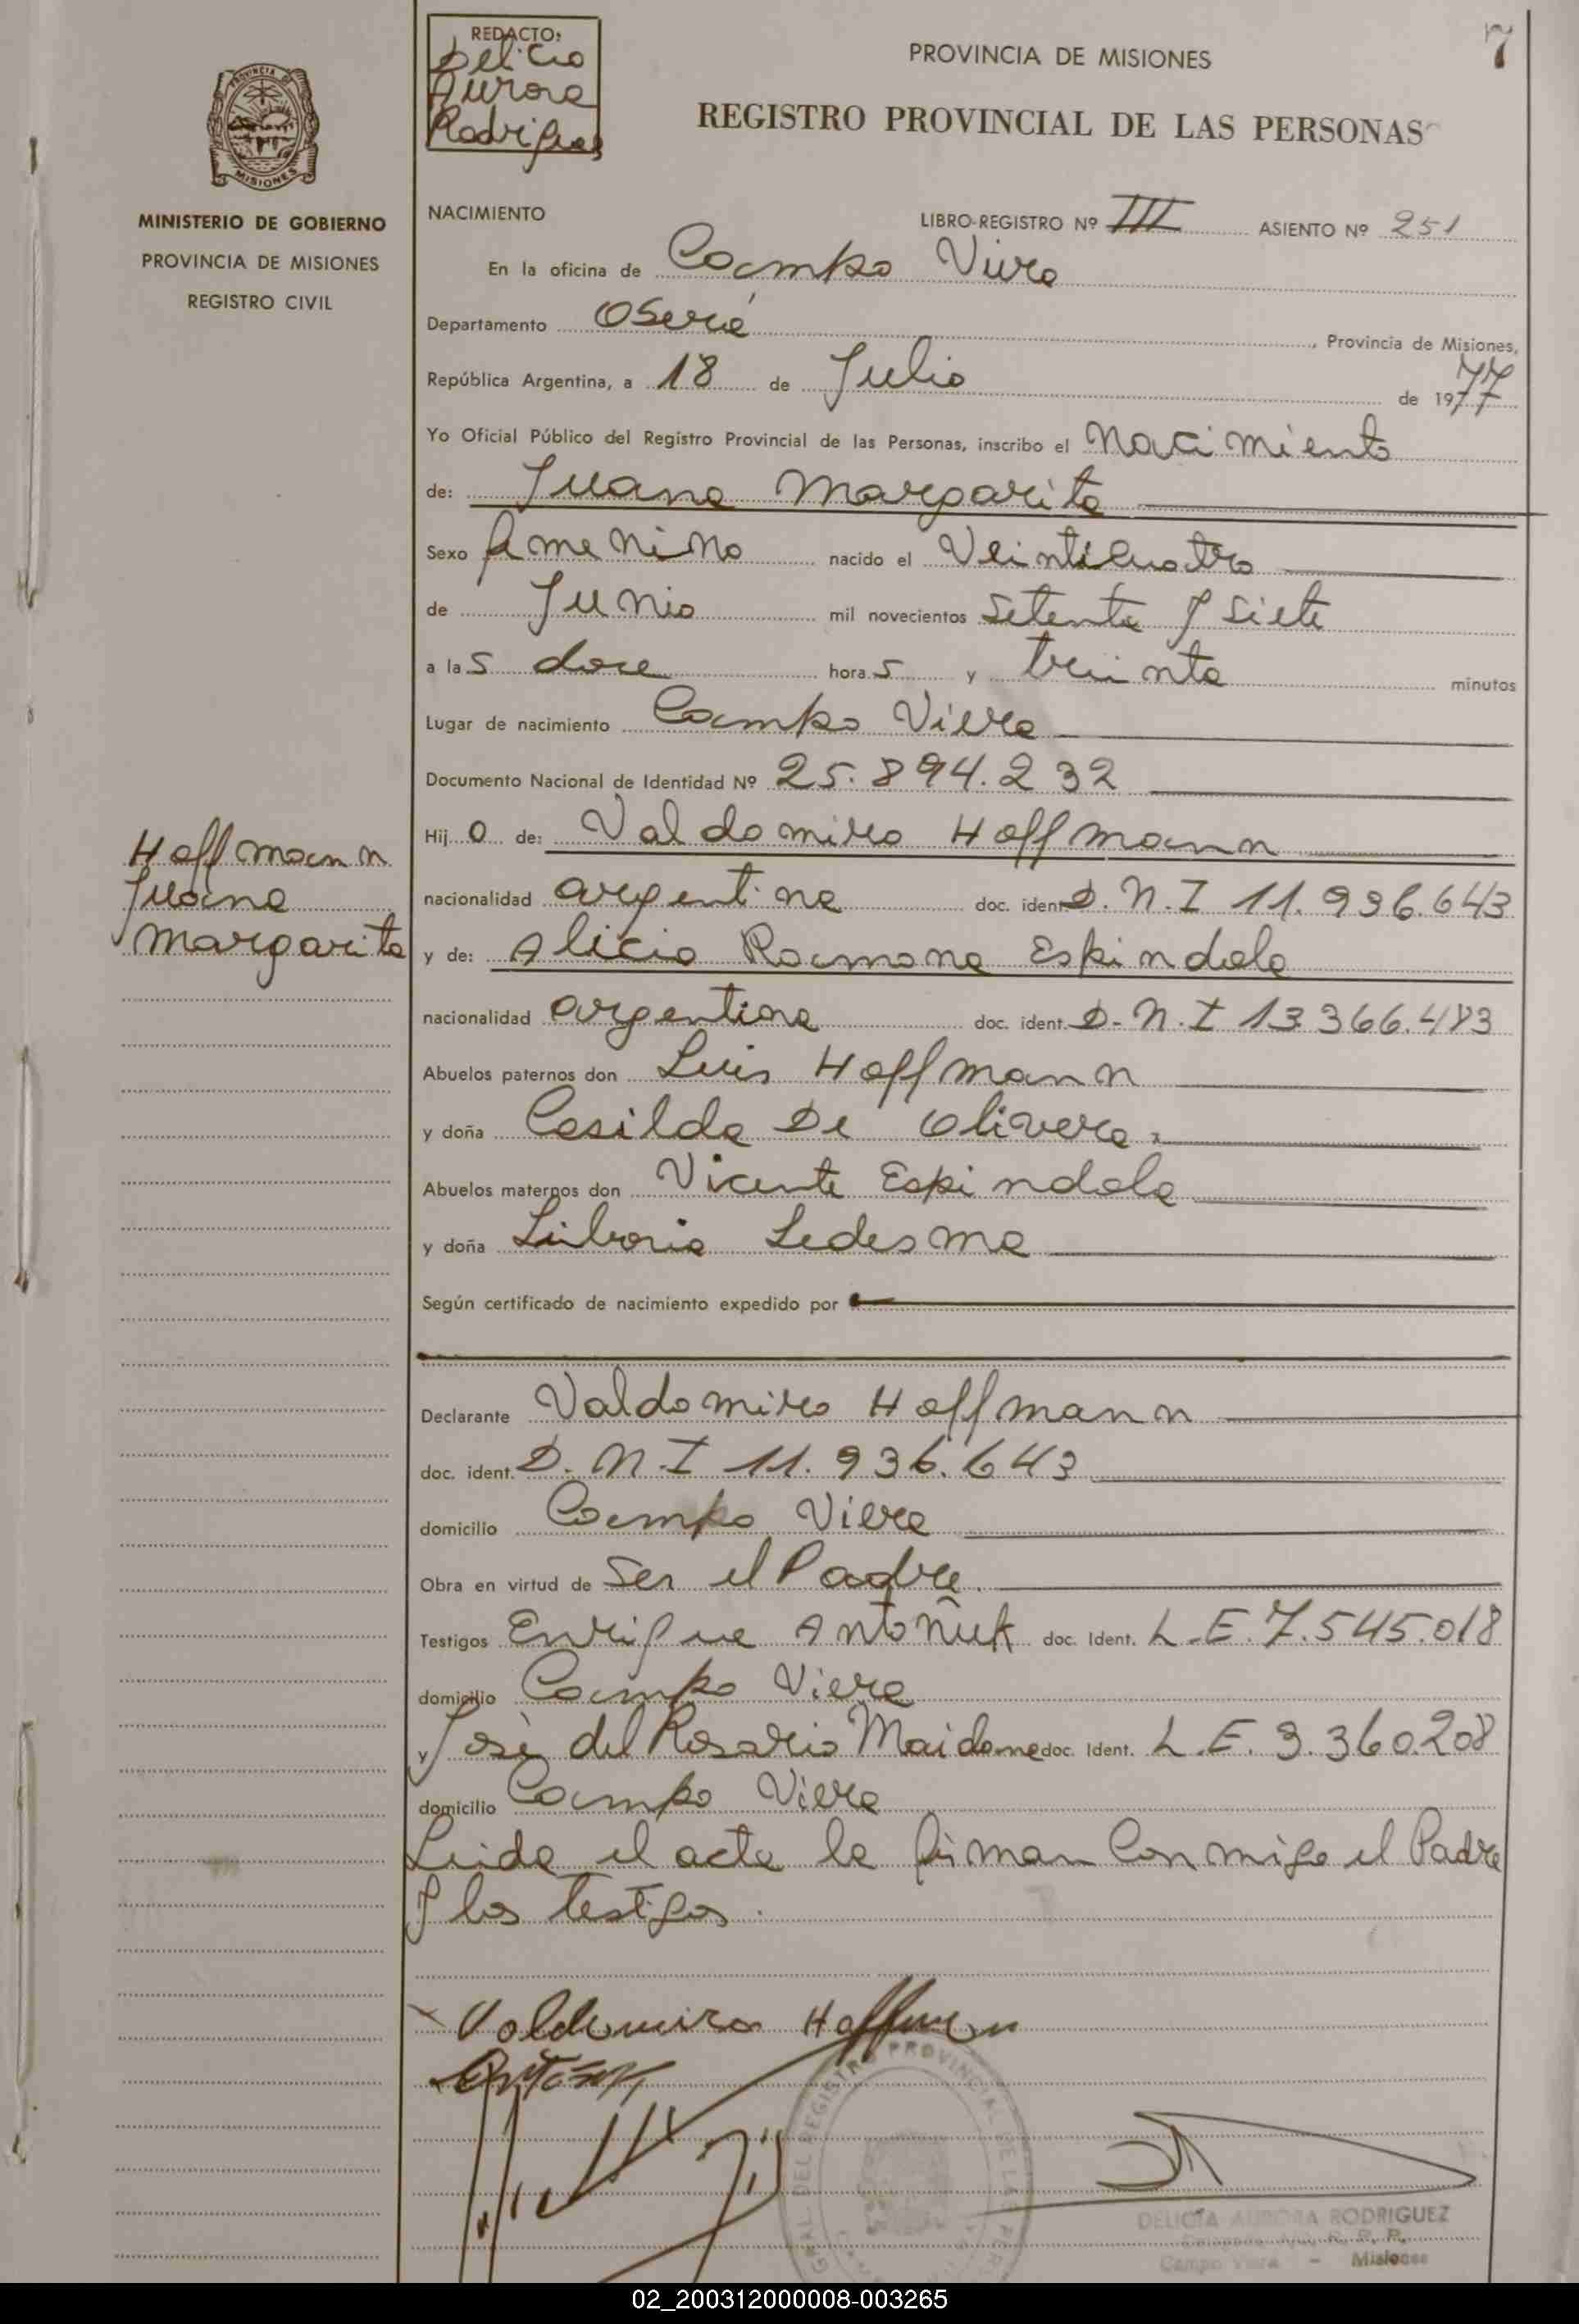 7
REDACTO:
Delicia
Aurora
Rodriguez
PROVINCIA DE MISIONES
REGISTRO PROVINCIAL DE LAS PERSONAS
MISIONES
MINISTERIO DE GOBIERNO
PROVINCIA DE MISIONES
REGISTRO CIVIL
NACIMIENTO
LIBRO-REGISTRO Nº III ASIENTO Nº 251
En la oficina de Campo Viera
Departamento Oberá, Provincia de Misiones,
República Argentina, a 18 de Julio de 1977
Yo Oficial Público del Registro Provincial de las Personas, inscribo el Nacimiento
de: Juana Margarita
Sexo femenino nacido el Veinticuatro
de Junio mil novecientos setenta y siete
a las doce horas y treinta minutos
Lugar de nacimiento Campo Viera
Documento Nacional de Identidad Nº 25.894.232
Hijo de: Valdomiro Hoffmann
nacionalidad argentina doc. ident. D.N.I 11.936.643
Hoffmann
Juana
Margarita
y de: Alicia Ramona Espindola
nacionalidad argentina doc. ident. D.N.I 13.366.483
Abuelos paternos don Luis Hoffmann
y doña Casilda De Olivera.
Abuelos maternos don Vicente Espindola
y doña Liboria Ledesma
Según certificado de nacimiento expedido por
Declarante Valdomiro Hoffmann
doc. ident. D.N.I 11.936.643
domicilio Campo Viera
Obra en virtud de Ser el Padre.
Testigos Enrique Antoñuk doc. Ident. L.E. 7.545.018
domicilio Campo Viera
y José del Rosario Maidana doc. Ident. L.E. 3.360.208
domicilio Campo Viera
Leida el acta la firman Conmigo el Padre
y los testigos.
Valdomiro Hoffman
DELICIA AURORA RODRIGUEZ
Campo Viera - Misiones
02_200312000008-003265